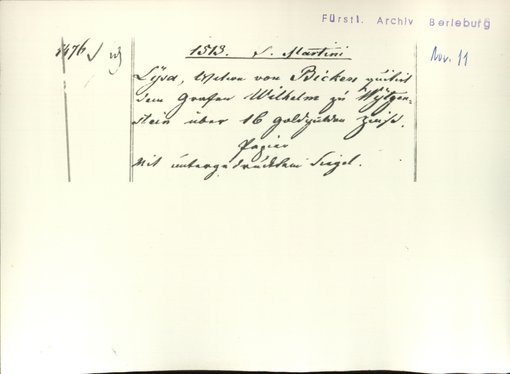 Fürstl. Archiv Berleburg
Nov. 11
1476
1513. S. Martini
Lysa, Witwe von Bicken quitirt
dem Grafen Wilhelm zu Wytgen-
stein über 16 Goldgulden Zinß.
Papier
Mit untergedrucktem Siegel.